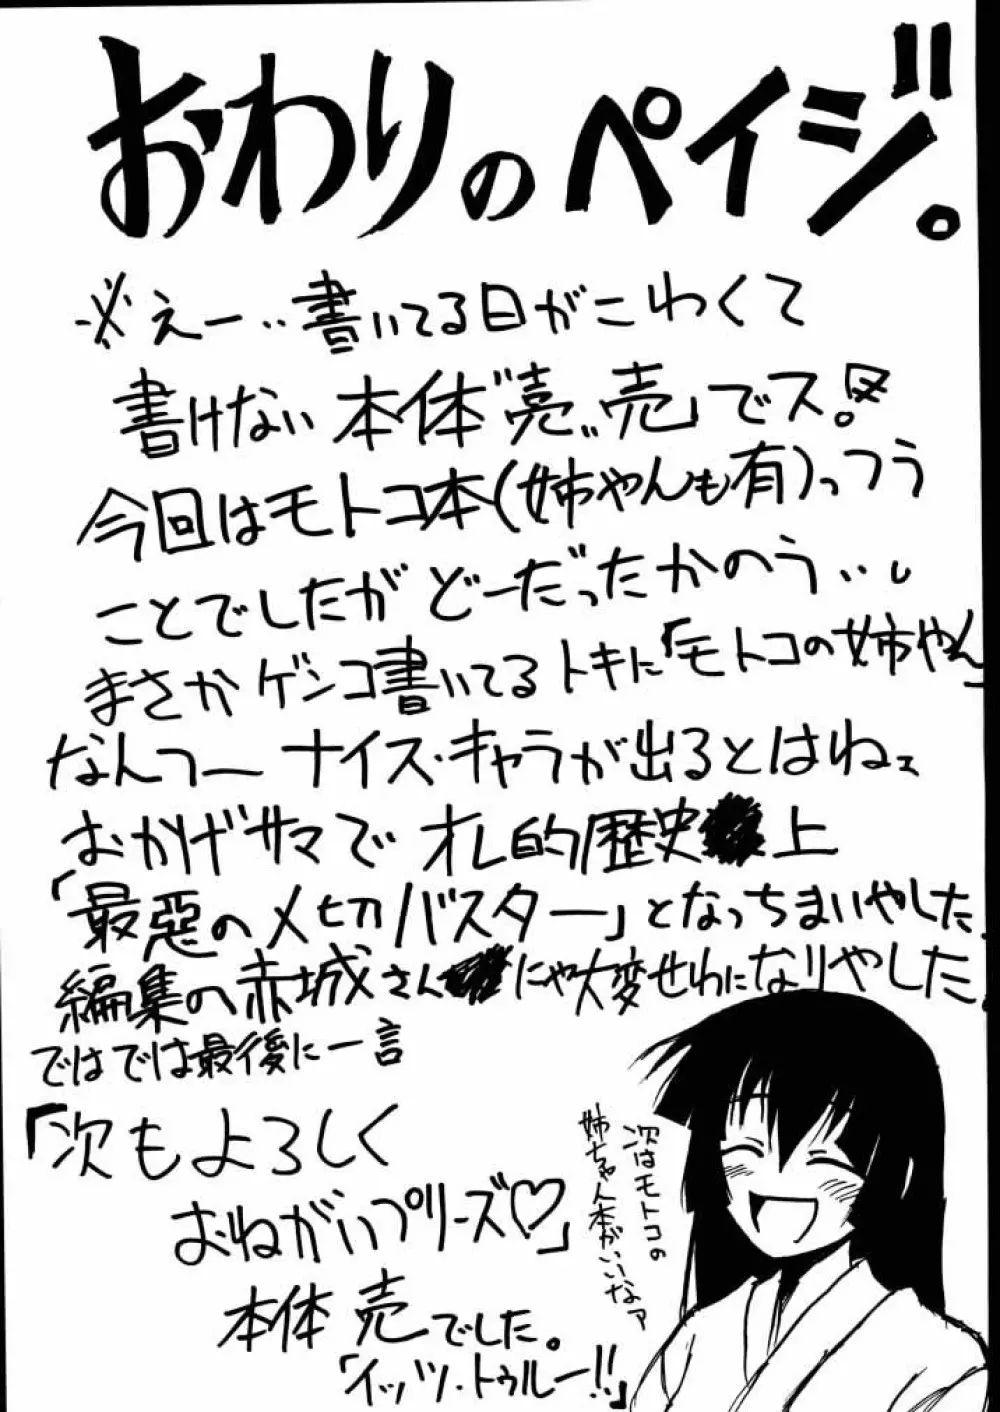 おわりのペイジ。
※えー‥書いてる日がこわくて
書けない本体〝売〟売」でス。
今回はモトコ本(姉やんも有)っつう
ことでしたがどーだったかのう‥し
まさかゲンコ書いてるトキに「モトコの姉やん」
なんつーナイス・キャラが出るとはねェ
おかげサマでオレ的歴史上
「最悪の〆切バスター」となっちまいやした.
編集の赤城さんにゃ大変せわになりやした.
ではでは最後に一言
「次もよろしく
おねがいプリーズ♡」
本体 売でした。
「イッツ・トゥルー!!」
次はモトコの
姉ちゃん本がいいなァ